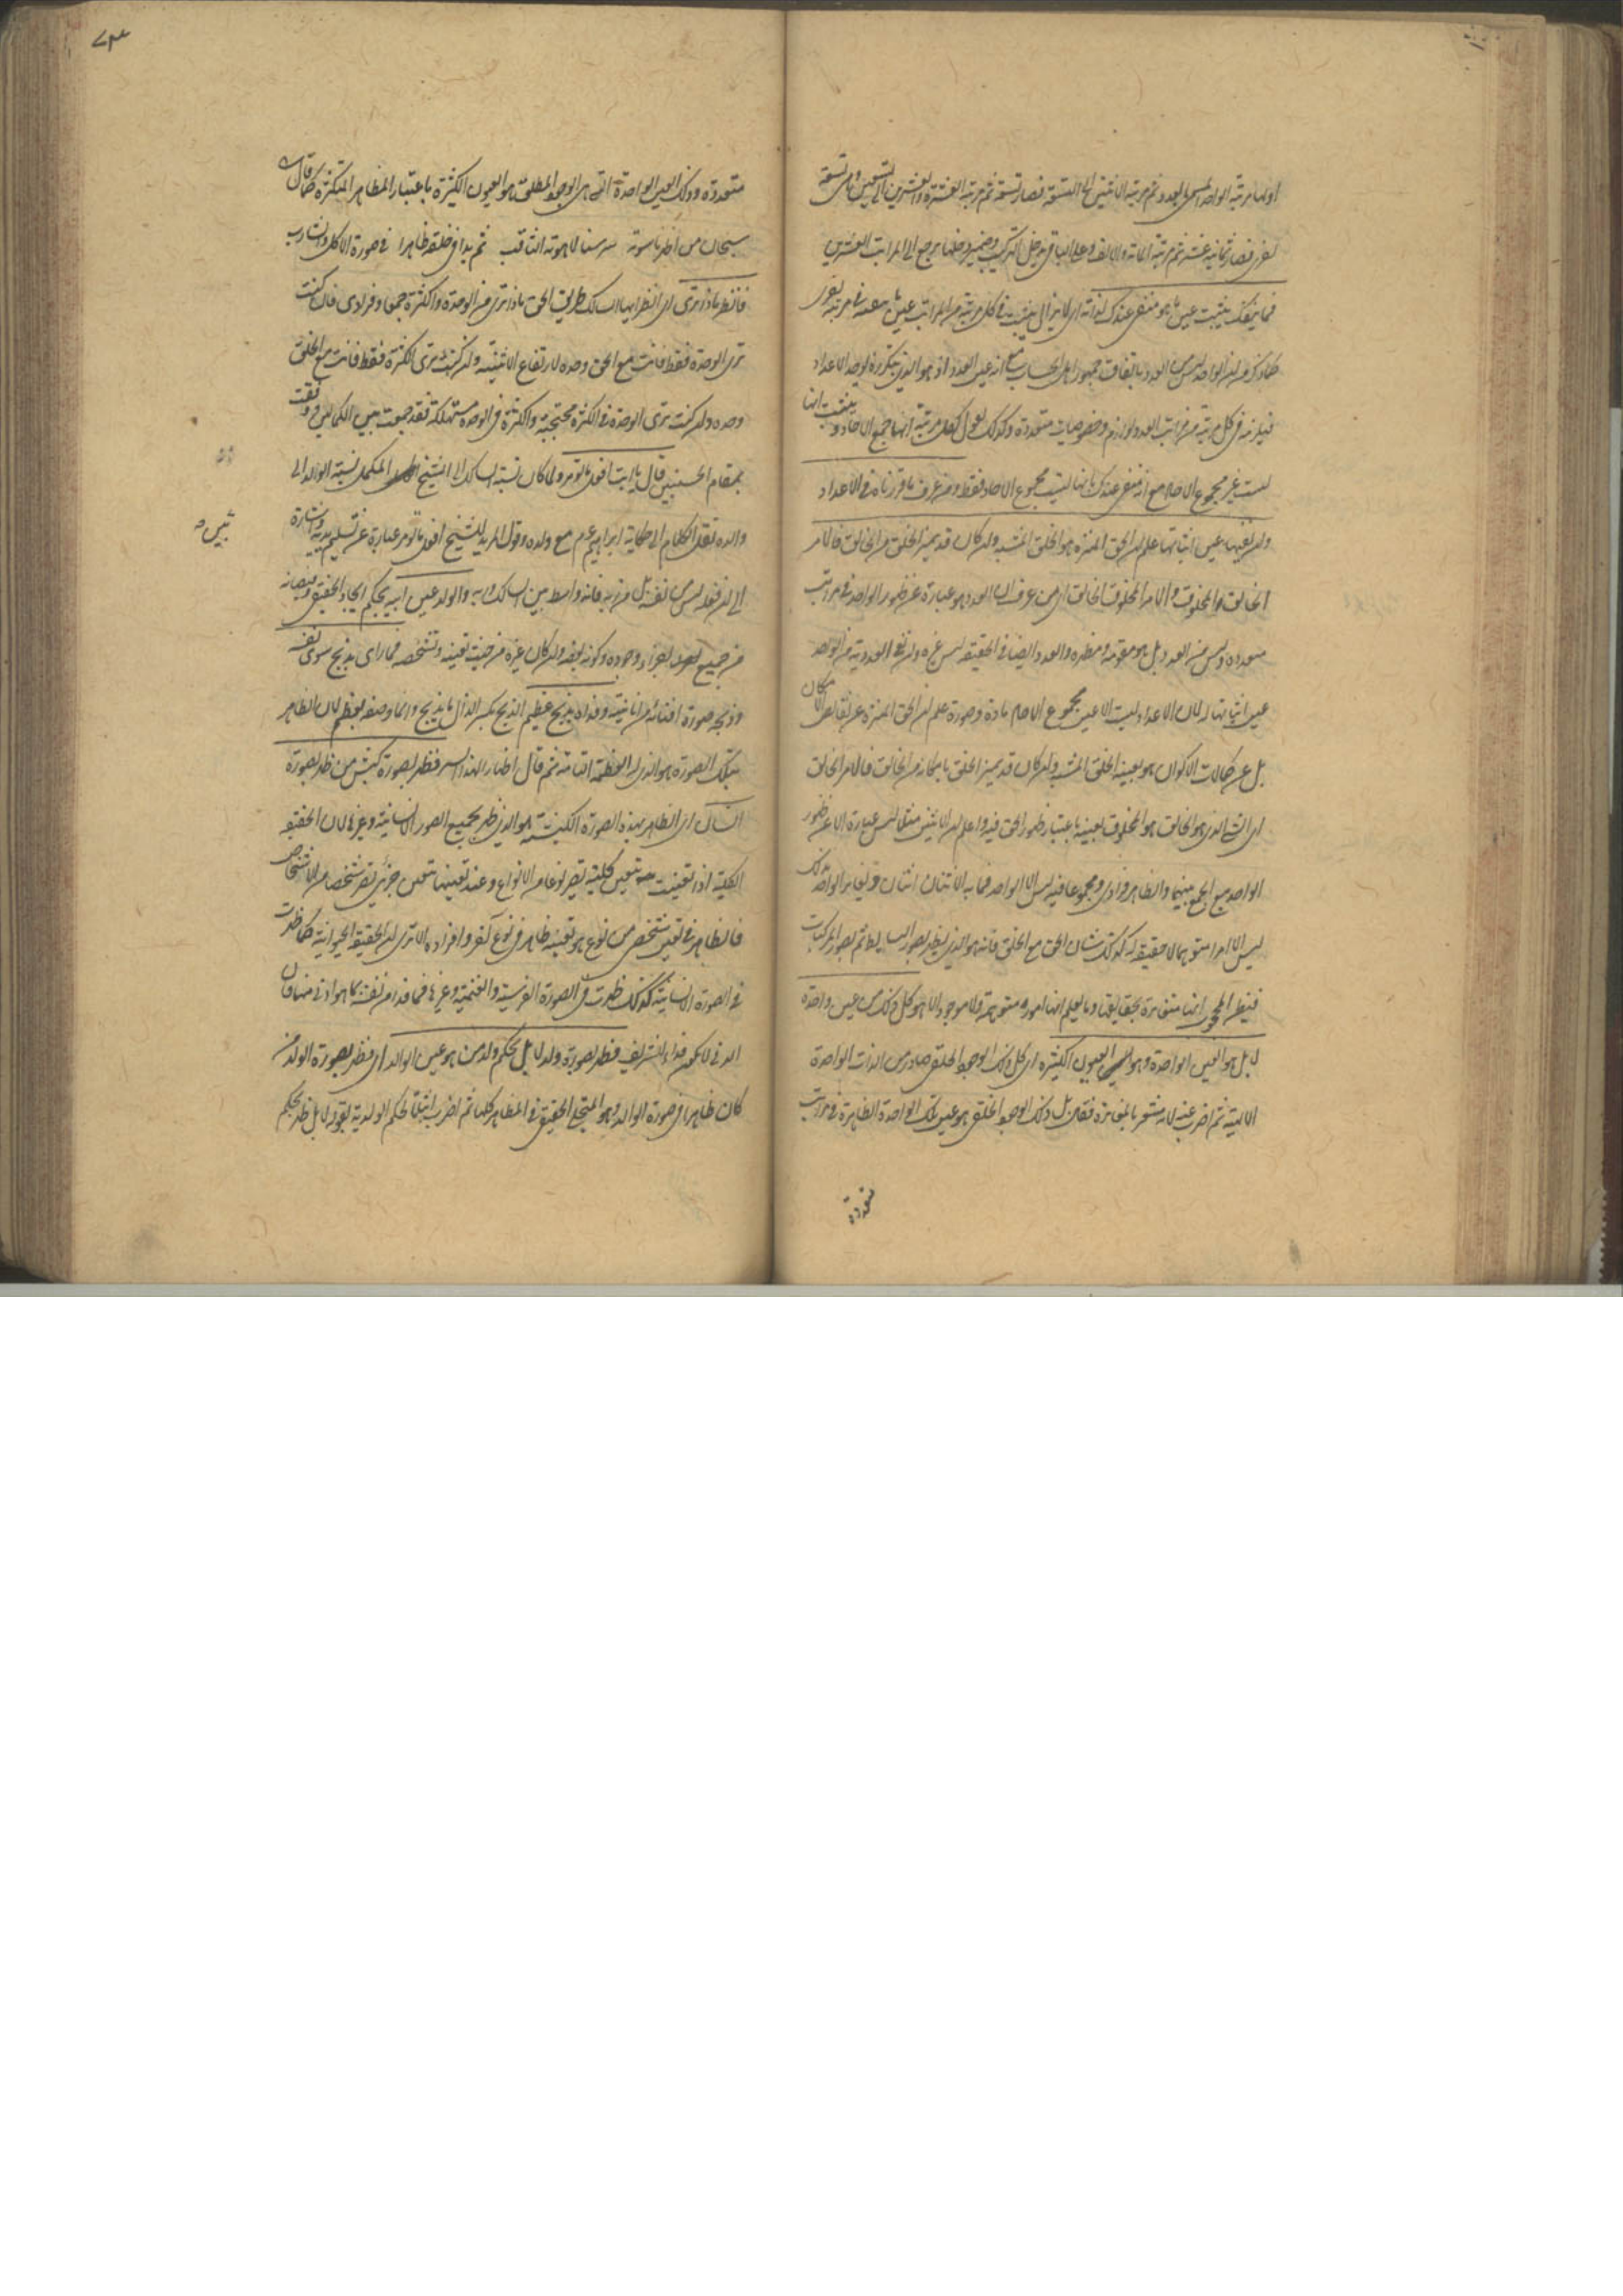 اولها مرتبة الواحد المسمى بالعدد ثم مرتبة الاثنين الى التسعة فصار تسعة ثم مرتبة العشرة والعشرين الى التسعين وهى تسعة
اخرى فصار ثمانية عشر ثم مرتبة المائة والالف وعلى الباقى يدخل التركيب وضمير دخلها يرجع الى المراتب العشرين
فما ينفك يثبت عين ما هو منفى عندك لذاته اى لا يزال يثبت فى كل مرتبة من المراتب عين ما ينفيه فى مرتبة اخرى
كما ذكر من ان الواحد ليس من العدد باتفاق جمهور اهل الحساب مع انه عين العدد اذ هو الذى بتكرره توجد الاعداد
فيلزمه فى كل مرتبة من مراتب العدد لوازم وخصوصيات متعددة وكذلك نقول لكل مرتبة انها جمع الاحاد ونثبت انها
ليست غير مجموع الاحاد مع انه منفى عندك بانها ليست مجموع الاحاد فقط ومن عرف ما قررناه فى الاعداد
وان نفيها عين اثباتها علم ان الحق المنزه هو الخلق المشبه وان كان قد تميز الخلق من الخالق فالامر
الخالق المخلوق والامر المخلوق الخالق اى من عرف ان العدد هو عبارة عن ظهور الواحد فى مراتب
متعددة وليس من العدد بل هو مقومه ومظهره والعدد ايضا فى الحقيقة ليس غيره وان نفى العددية من الواحد
عين اثباتها له لان الاعداد ليست الا عين مجموع الاحاد مادة وصورة علم ان الحق المنزه عن نقائص الامكان
بل عن كمالات الاكوان هو بعينه الخلق المشبه وان كان قد تميز الخلق بامكانه من الخالق فالامر الخالق
اى الشئ الذى هو الخالق هو المخلوق بعينه باعتبار ظهور الحق فيه واعلم ان الاثنين مثلا ليس عبارة الا عن ظهور
الواحد مع الجمع بينهما والظاهر فرادى ومجموعا فيه ليس الا الواحد فما به الاثنان اثنان ويغاير الواحد ذلك
ليس الا امر متوهم لا حقيقة له كذلك شان الحق مع الخلق فانه هو الذى يظهر بصور البسايط ثم بصور المركبات
فيظن المحجوب انها متغايرة بحقايقها وما يعلم انها امور متوهمة ولا موجود الا هو كل ذلك من عين واحدة
لا بل هو العين الواحدة وهو العيون الكثيرة اى كل ذلك الوجود الخلقى صادر من الذات الواحدة
الالهية ثم اضرب عنه لانه مشعر بالمغايرة فقال بل ذلك الوجود الخلقى هو عين تلك الواحدة الظاهرة فى مراتب
متعددة
متعددة وذلك العين الواحدة التى هى الوجود المطلق هو العيون الكثيرة باعتبار المظاهر المتكثرة كما قال
سبحان من اظهر ناسوته سر سنا لاهوته الثاقب ثم بدا فى خلقه ظاهرا فى صورة الاكل والشارب
فانظر ماذا ترى اى انظر ايها السالك طريق الحق ماذا ترى من الوحدة والكثرة جمعا وفرادى فان كنت
ترى الوحدة فقط فانت مع الحق وحده لارتفاع الاثنينية وان كنت ترى الكثرة فقط فانت مع الخلق
وحده وان كنت ترى الوحدة فى الكثرة محتجبة والكثرة فى الوحدة مستهلكة فقد جمعت بين الكمالين وفقت
بمقام الحسنيين قال يا ابت افعل ما تؤمر ولما كان نسبة السالك الى الشيخ المكمل نسبة الولد الى
والده نقل الكلام الى حكاية ابراهيم عم مع ولده وقول المريد للشيخ افعل ما تؤمر عبارة عن تسليمه يديه واشارة
الى ان فعله ليس من نفسه بل من ربه فانه واسطة بين السالك وربه والولد عين ابيه بحكم اتحاد الحقيقة
من جميع وجوده وكونه بعضه وان كان غيره من حيث تعينه وتشخصه فما راى يذبح سوى نفسه
وذبحه صورة افنائه من انانيته وفداه بذبح عظيم الذبح بكسر الذال ما يذبح وانما وصفه بعظيم لان الظاهر
بتلك الصورة هو الذى له العظمة التامة ثم قال اظهارا لهذا السر فظهر بصورة كبش من ظهر بصورة
انسان اى الظاهر بهذه الصورة الكبشية هو الذى ظهر بجميع الصور الانسانية وغيرها لان الحقيقة
الكلية اذا تعينت تعين كلية تصير نوعا من الانواع وعند تعينها بتعين جزئى تصير شخصا من الاشخاص
فالظاهر فى تعين شخص من نوع هو بعينه ظاهر فى نوع آخر وافراده الا ترى ان الحقيقة الحيوانية كما ظهرت
فى الصورة الانسانية كذلك ظهرت فى الصورة الفرسية والغنمية وغيرها فما فداه من نفسه بما هو ادنى منها فان
الدنى لا يكون فداء للشريف فظهر بصورة ولد لا بل بحكم ولد من هو عين الوالد اى فظهر بصورة الولد من
كان ظاهرا فى صورة الوالد وهو المتجلى الحقيقى فى المظاهر كلها ثم اضرب اثباتا لحكم الولدية بقوله لا بل ظهر بحكم